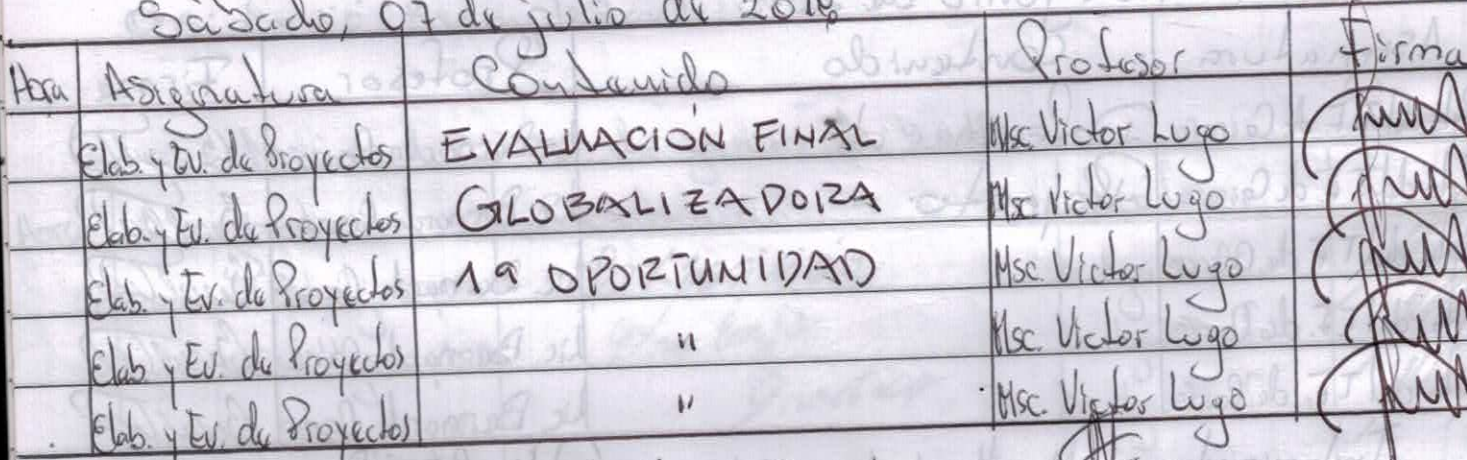 Sábado, 07 de julio de 2018
Hora Asignatura Contenido Profesor Firma
Elab. y Ev. de Proyectos EVALUACIÓN FINAL Msc. Victor Lugo
Elab. y Ev. de Proyectos GLOBALIZADORA Msc. Victor Lugo
Elab. y Ev. de Proyectos 1ª OPORTUNIDAD Msc. Victor Lugo
Elab. y Ev. de Proyectos " Msc. Victor Lugo
Elab. y Ev. de Proyectos " Msc. Victor Lugo